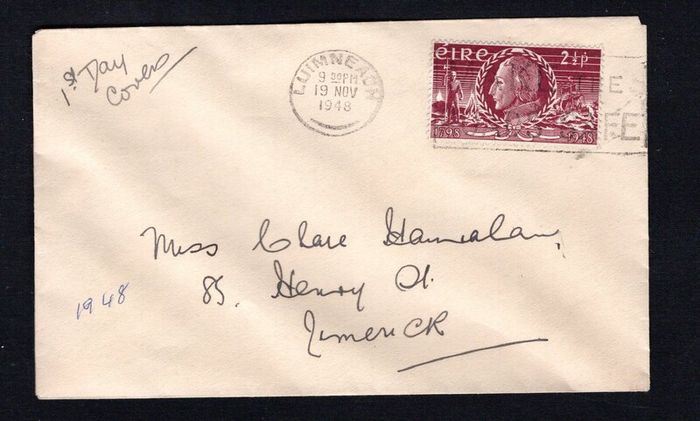 1st Day
Covers
LUIMNEACH
9 30PM
19 NOV
1948
éire 2½p
1798 1948
Miss Clare Hanrahan,
85, Henry St.
Limerick
1948